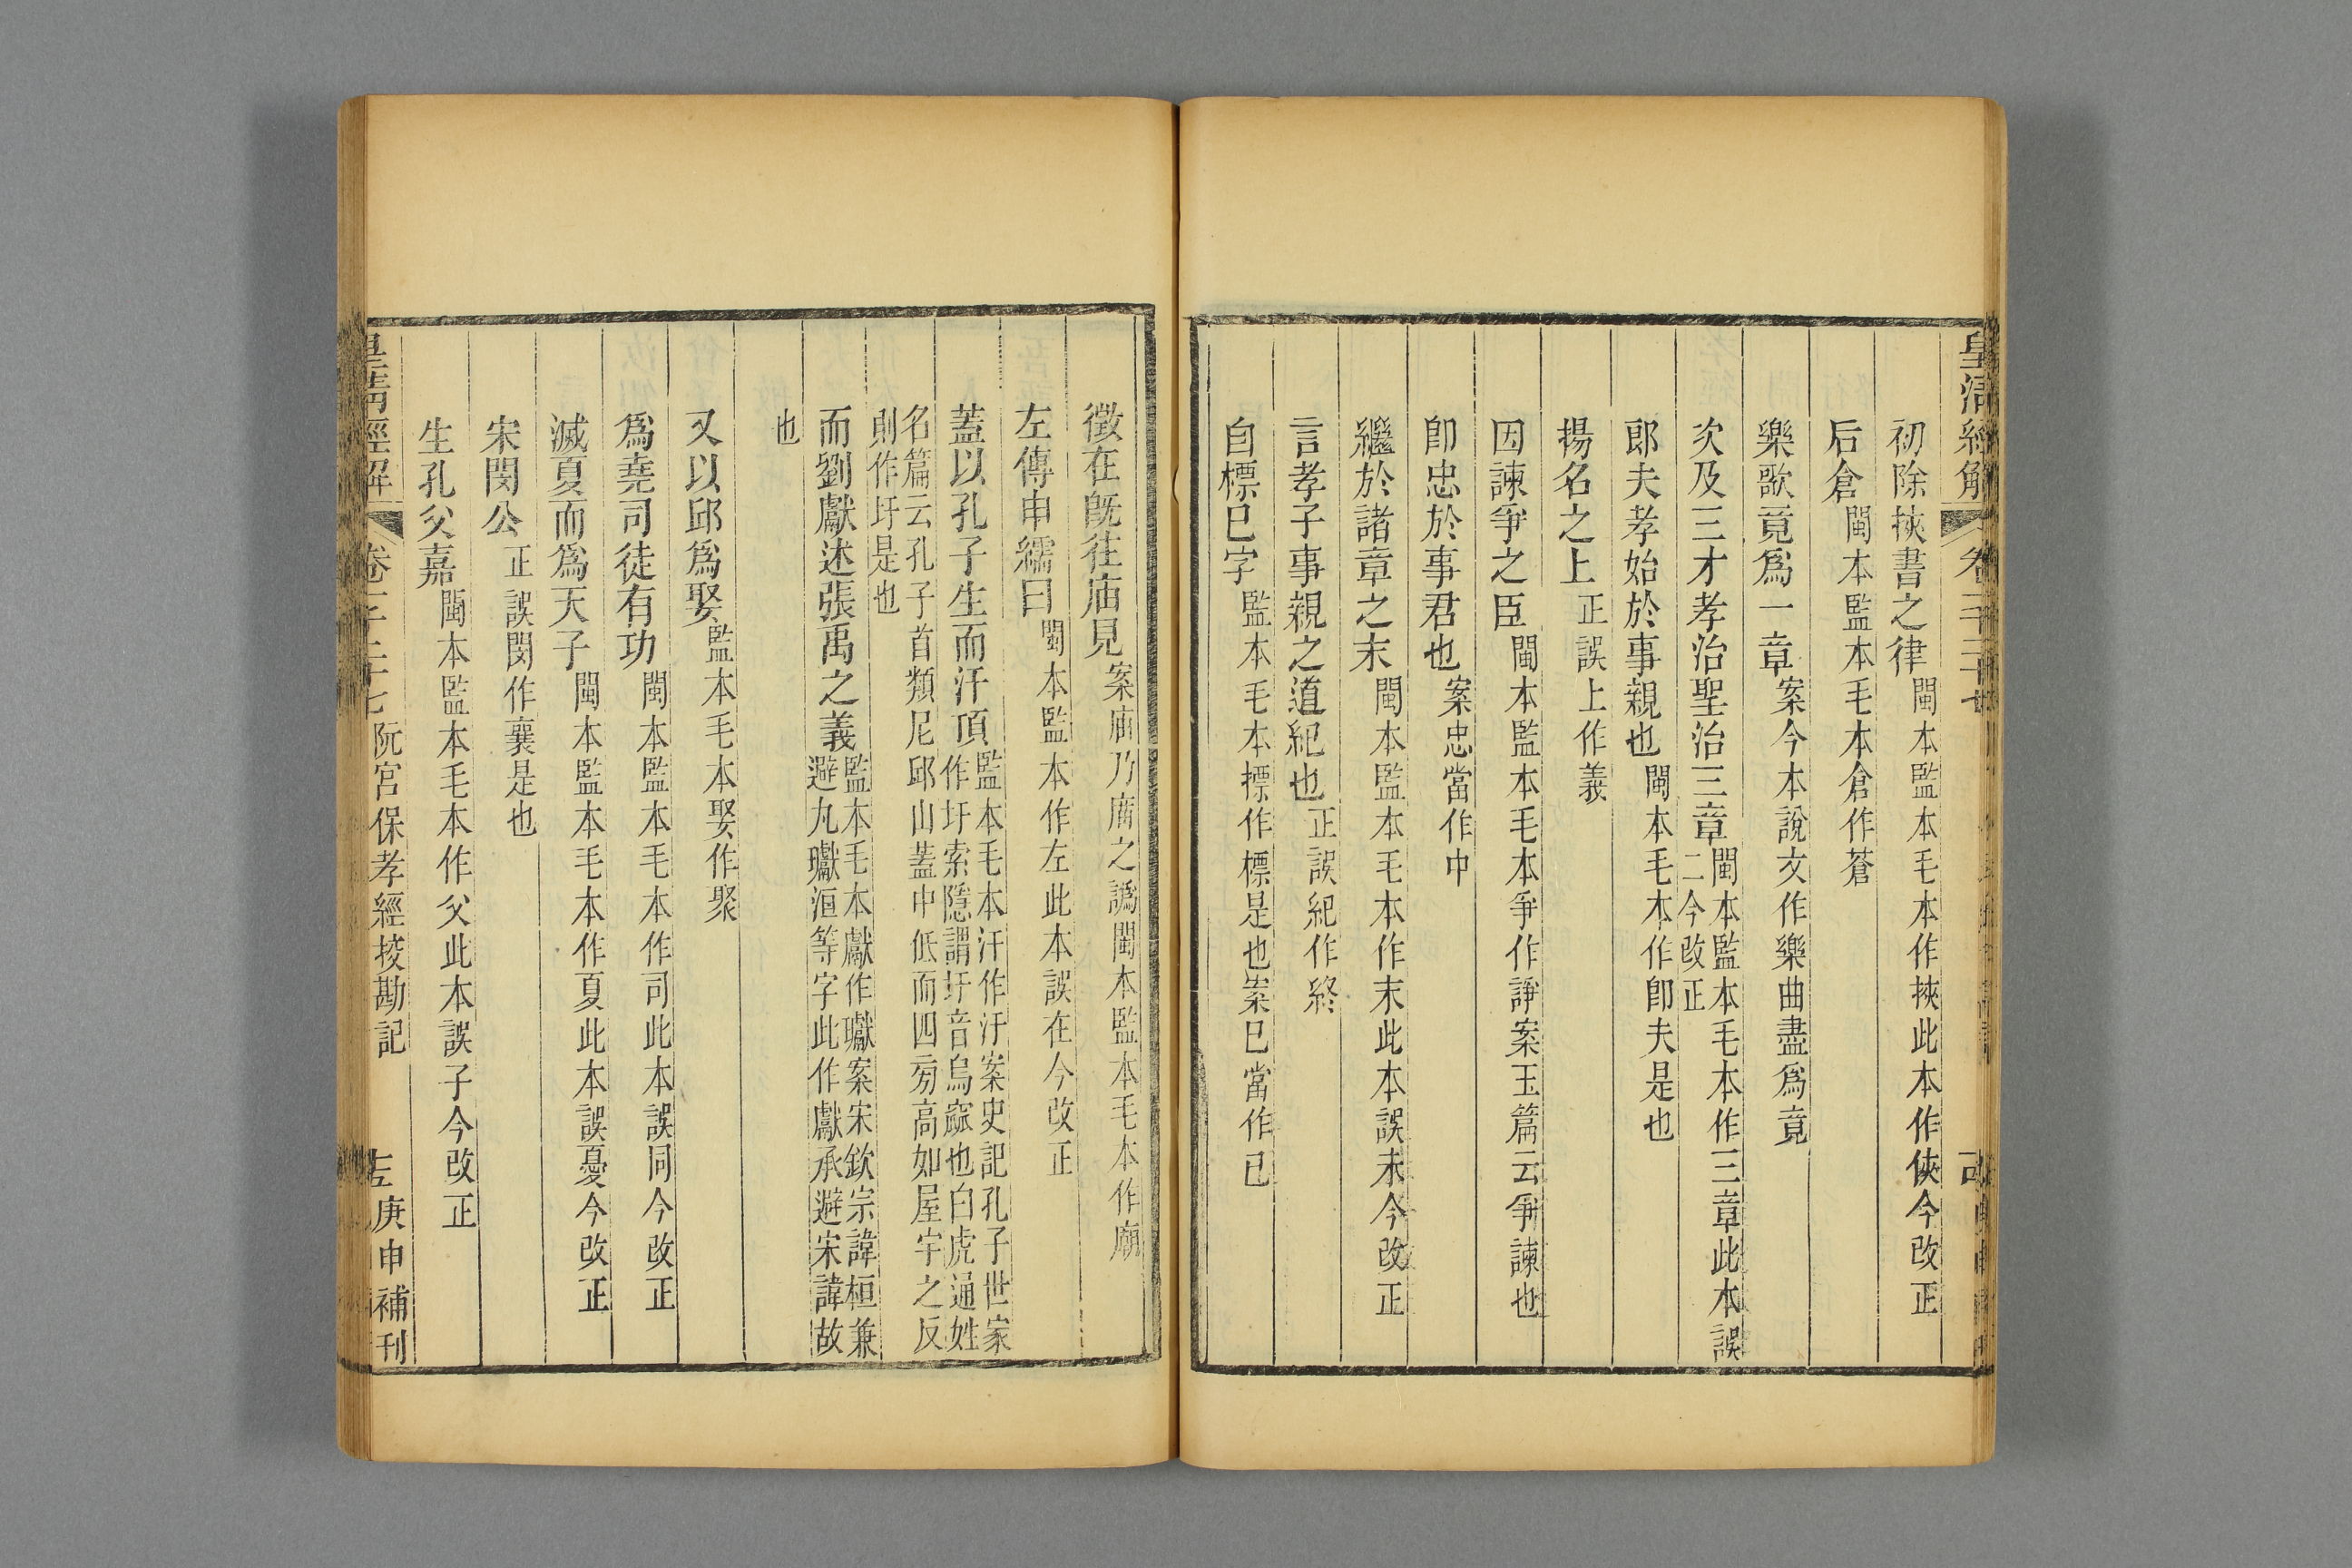 皇清經解
初除挾書之律閩本監本毛本作挾此本作俠今改正
后倉閩本監本毛本倉作蒼
樂歌竟爲一章案今本說文作樂曲盡爲竟
次及三才孝治聖治三章閩本監本毛本作三章此本誤二今改正
郎夫孝始於事親也閩本毛本作卽夫是也
揚名之上正誤上作義
因諫爭之臣閩本監本毛本爭作諍案玉篇云爭諫也
卽忠於事君也案忠當作中
繼於諸章之末閩本監本毛本作末此本誤未今改正
言孝子事親之道紀也正誤紀作終
自標巳字監本毛本摽作標是也案巳當作已
徵在旣往庙見案庙乃庿之譌閩本監本毛本作廟
左傳申繻曰閩本監本作左此本誤在今改正
蓋以孔子生而汙頂監本毛本汙作汚案史記孔子世家作圩索隱謂圩音烏窳也白虎通姓
名篇云孔子首類尼邱山葢中低而四旁高如屋宇之反
則作圩是也
而劉獻述張禹之義監本毛本獻作瓛案宋欽宗諱桓兼避丸瓛洹等字此作獻承避宋諱故
也
又以邱爲娶監本毛本娶作聚
爲堯司徒有功閩本監本毛本作司此本誤同今改正
滅夏而爲天子閩本監本毛本作夏此本誤憂今改正
宋閔公正誤閔作襄是也
生孔父嘉閩本監本毛本作父此本誤子今改正
皇清經解 卷一千二十七 阮宮保孝經挍勘記 庚申補刊